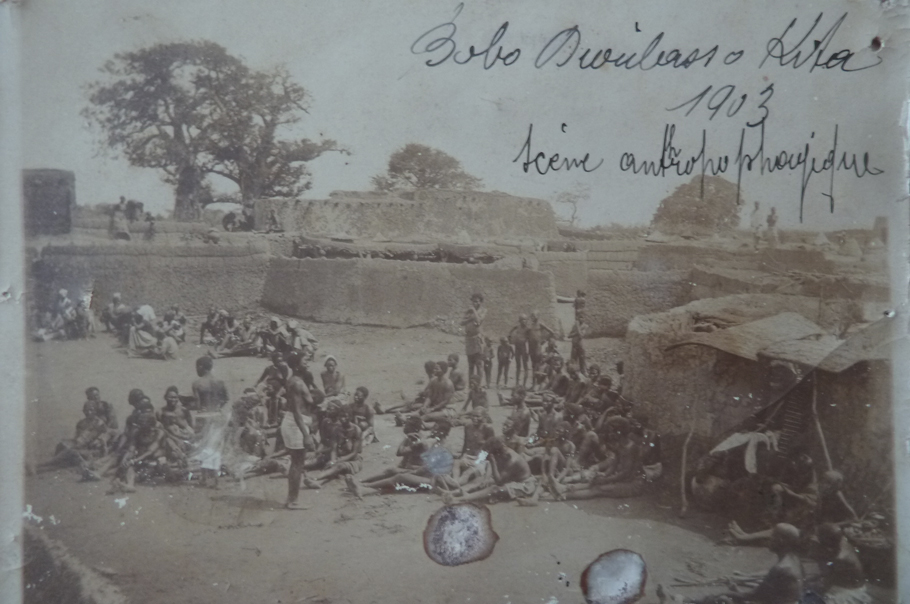 Bobo Dioulasso Kita
1903
scène antropophagique